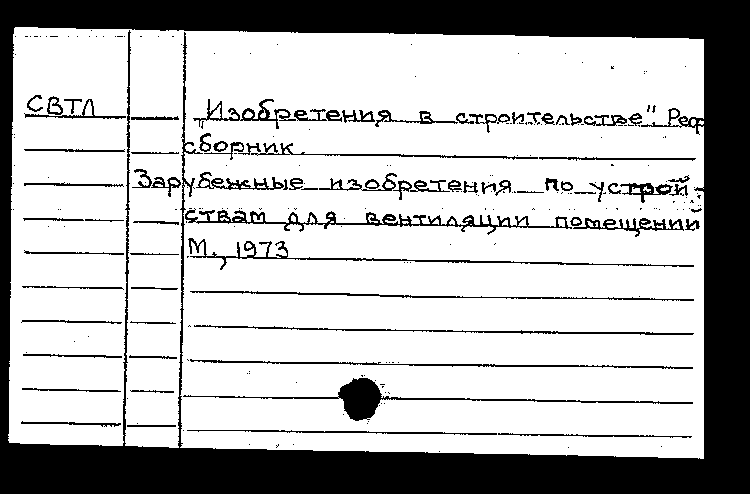 СВТЛ
„Изобретения в строительстве". Реф
сборник.
Зарубежные изобретения по устрой-
ствам для вентиляции помещений
М., 1973